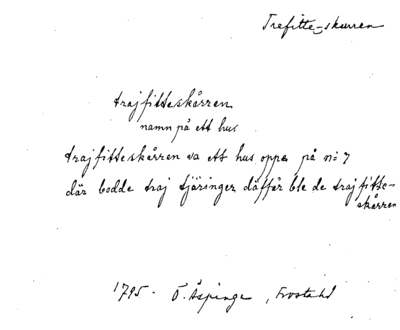 Trefitte-skurren
trajfitteskårren
namn på ett hus
trajfitteskårren va ett hus oppe på n: 7
där bodde traj tjäringer däffår ble de trajfitte-
skårren
1795. Ö. Äspinge, Frostahd